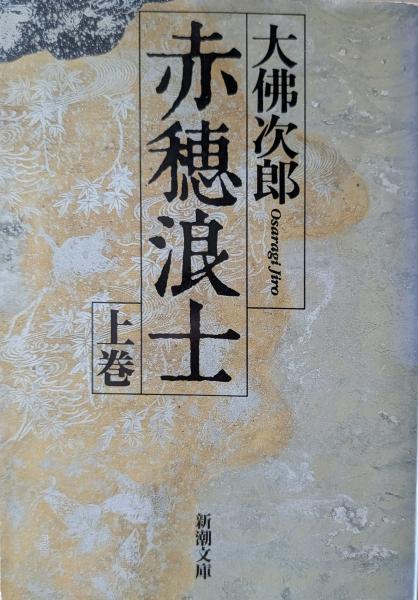 大佛次郎
Osaragi Jiro
赤穂浪士
上巻
新潮文庫